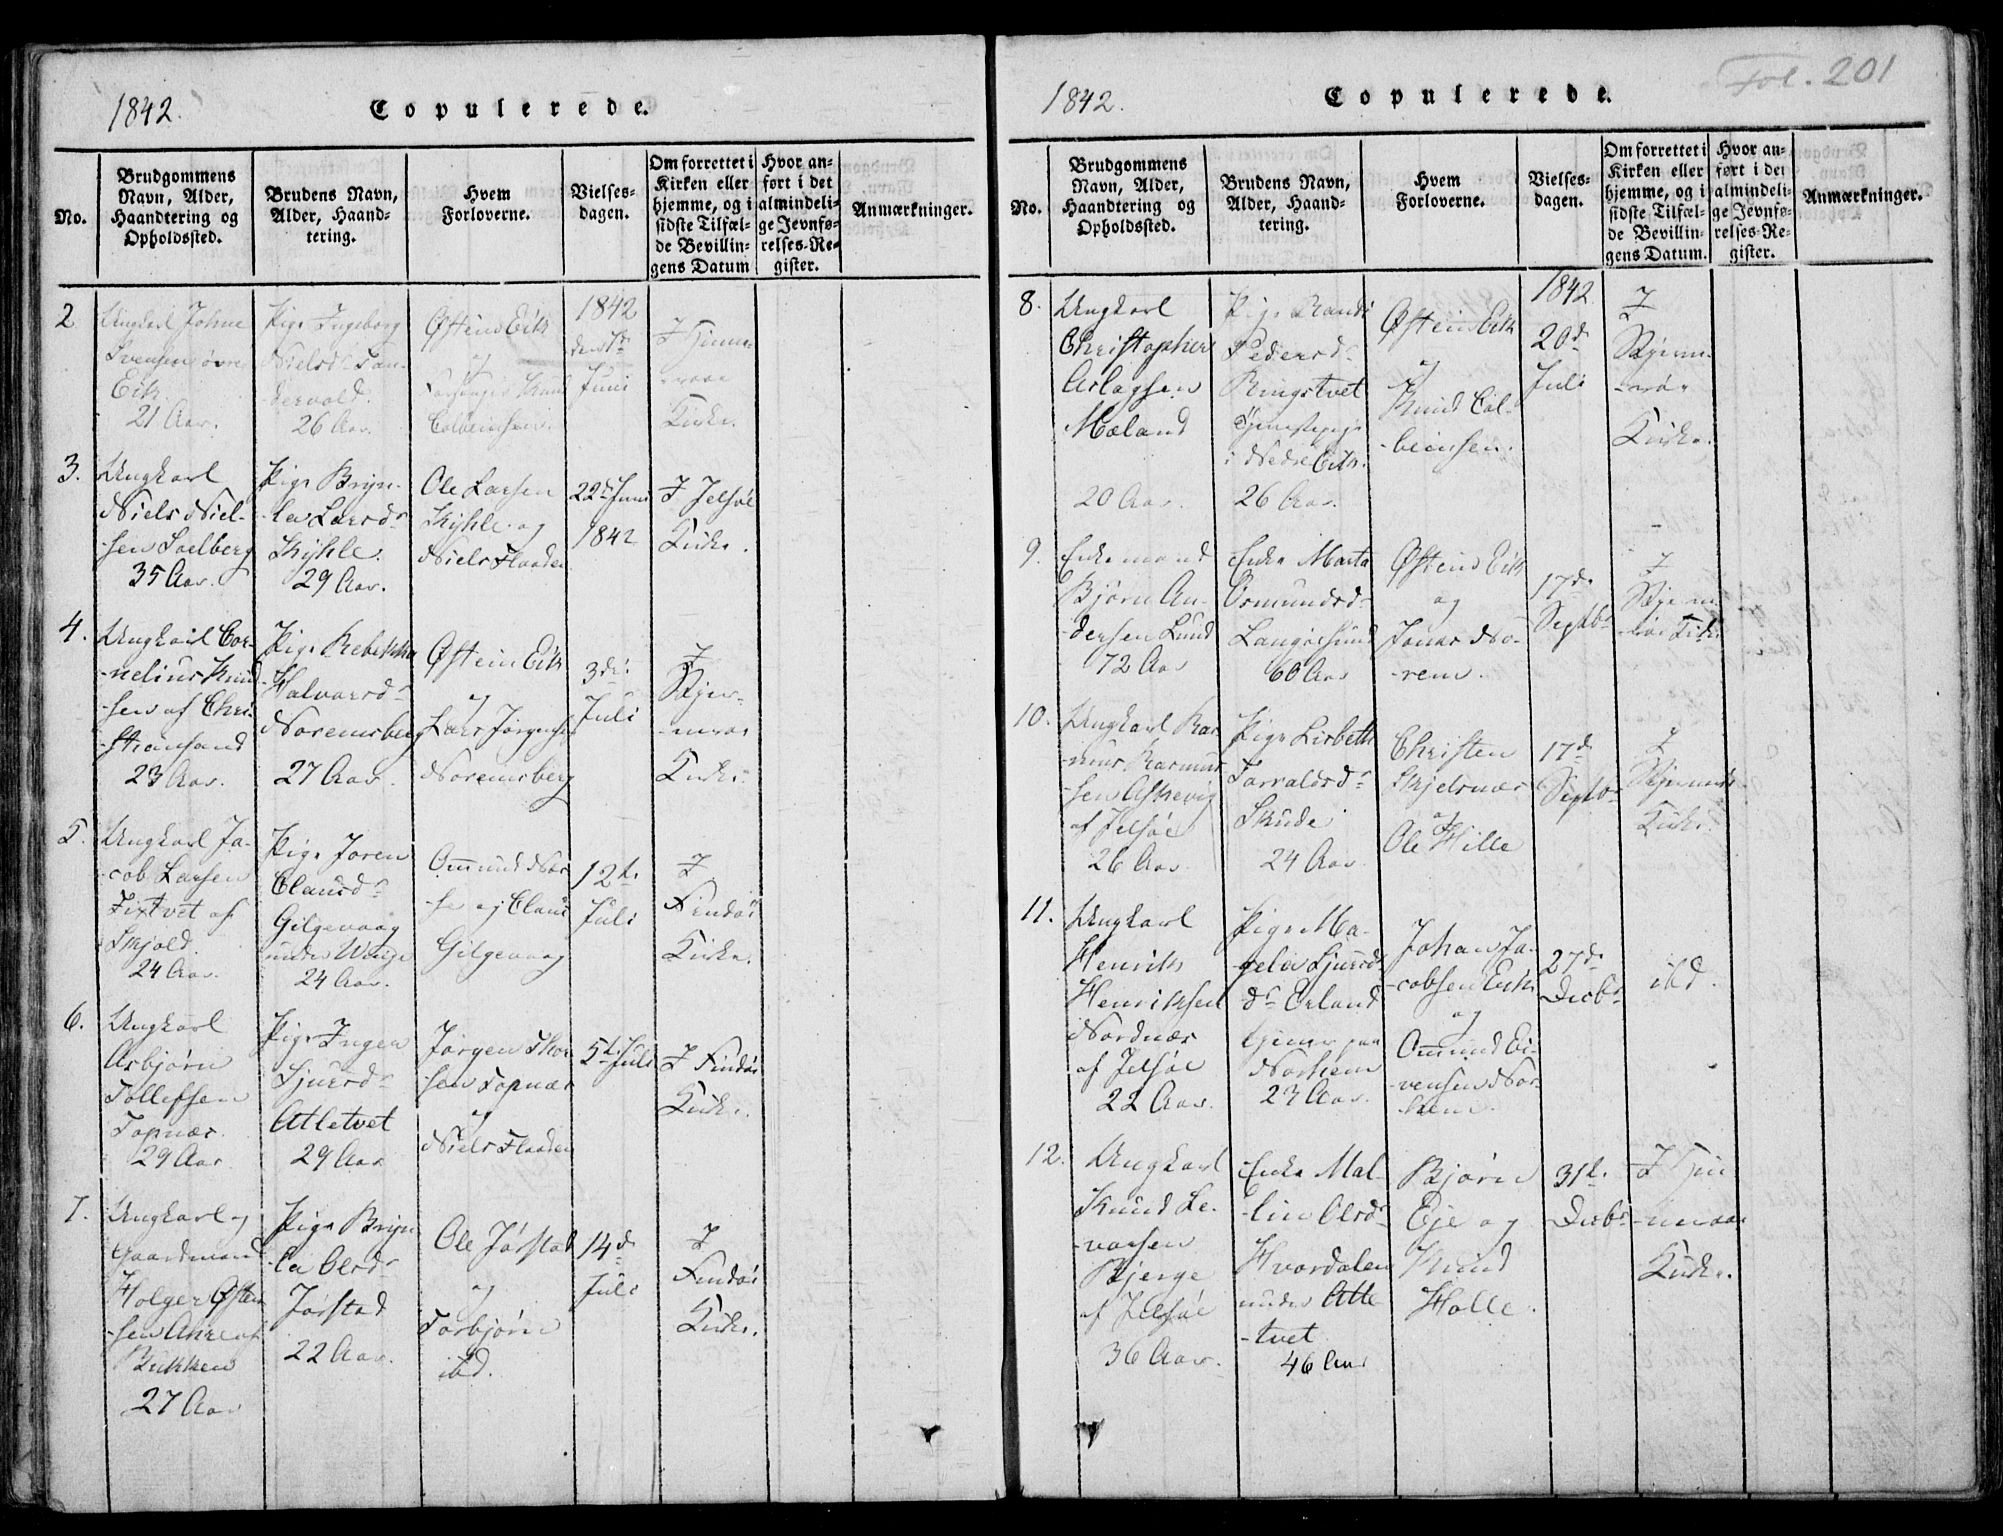 1842.
Copulerede.
No.
Brudgommens
Navn, Alder,
Haandtering og
Opholdssted.
Brudens Navn,
Alder, Haand-
tering.
Hvem
Forloverne.
Vielses-
dagen.
Om forrettet i
Kirken eller
hjemme, og i
sidste Tilfæl-
de Bevillin-
gens Datum
Hvor an-
ført i det
almindeli-
ge Jevnfø-
relses-Re-
gister.
Anmærkninger.
2
Ungkarl Johne
Svensen øvre
Eik
21 Aar.
Pige Ingeborg
Nielsdr
26 Aar.
Østein Eik
og
Knud
Colbeinsen.
1842
den 1ste
Juni
Kirke.
3.
Ungkarl
Niels Niel-
-sen Soelberg
35 Aar.
Pige Bryn-
-la Larsdr
Kyhle.
29 Aar.
Ole Larsen
Kyhle og
Niels Flaaden
22de Juni
1842
I Jelsøe
Kirke.
4.
Ungkarl Cor-
-nelius Knud
-sen af Chri-
-stiansand
23 Aar.
Pige Rebekka
Halvorsdr
Noremsberg
27 Aar.
Østein Eik
og
Lars Jørgensen
Noremsberg
3die
Juli
I
Kirke.
5.
Ungkarl Ja-
-cob Larsen
Tixtvet af
Skjold.
24 Aar.
Pige Joren
Clausdr
Gilgevaag
under Wenge
24 Aar.
Ommund Nor-
og Claus
Gilgevaag
12te
Juli
I
Findøe
Kirke.
6.
Ungkarl
Asbjørn
Tollefsen
Topnæs.
29 Aar
Pige Ingen
Sjursdr
Atletvet
29 Aar
Jørgen Thor-
-sen Topnæs
og
Niels Flaaden
5te Juli
I Findøe
Kirke.
7.
Ungkarl og
Gaardmand
Holger Østen-
-sen Ahre af
Bukken
27 Aar
Pige Bryn-
-la Olsdr
Jørstad
22 Aar.
Ole Jørstad
og
Torbjørn
ibd.
14de
Juli
I
Findøe
Kirke.
Fol. 201
1842.
Copulerede.
No.
Brudgommens
Navn, Alder,
Haandtering og
Opholdssted.
Brudens Navn,
Alder, Haand-
tering.
Hvem
Forloverne.
Vielses-
dagen.
Om forrettet i
Kirken eller
hjemme, og i
sidste Tilfæl-
de Bevillin-
gens Datum.
Hvor an-
ført i det
almindeli-
ge Jevnfø-
relses-Re-
gister.
Anmærkninger.
8.
Ungkarl
Christopher
Aslagsen
Mæland
20 Aar.
Pige Randi
Pedersdr
Ringstvet
Tjenestepige
i Nedre Eik.
26 Aar.
Østein Eik
og
Knud Col-
-beinsen.
1842
20de
Juli
I
Kirke.
9.
Enkemand
Bjørn An-
-dersen Lund
72 Aar
Enke Marta
Osmundsdr
Langøesund
60 Aar
Østein Eik
og
Jonas No-
-rem.
17de
Septbr
I
10.
Ungkarl Ras-
-mus Rasmus-
-sen Askevig
af Jelsøe
26 Aar
Pige Lisbeth
Torvaldsdr
Skude
24 Aar
Christen
Skjelsnæs
og
Ole Hille
17de
Septbr
I
Kirke.
11.
Ungkarl
Henrik
Henriksen
Nordnæs
af Jelsøe
22 Aar.
Pige Ma-
Sjursd
dr Erland
tjener paa
Norheim
23 Aar.
Johan Ja-
-cobsen Eik
og
Ommund Ei-
-vensen Nor-
-heim.
27de
Decbr
ibd.
12.
Ungkarl
Knud Le-
-varsen
Bjerge
af Jelsøe
36 Aar.
Enke Mal-
-lin Olsdr
Hvardalen
under Atle-
-tvet
46 Aar
Bjørn
Eje og
Knud
Holle.
31te
Decbr
Kirke.